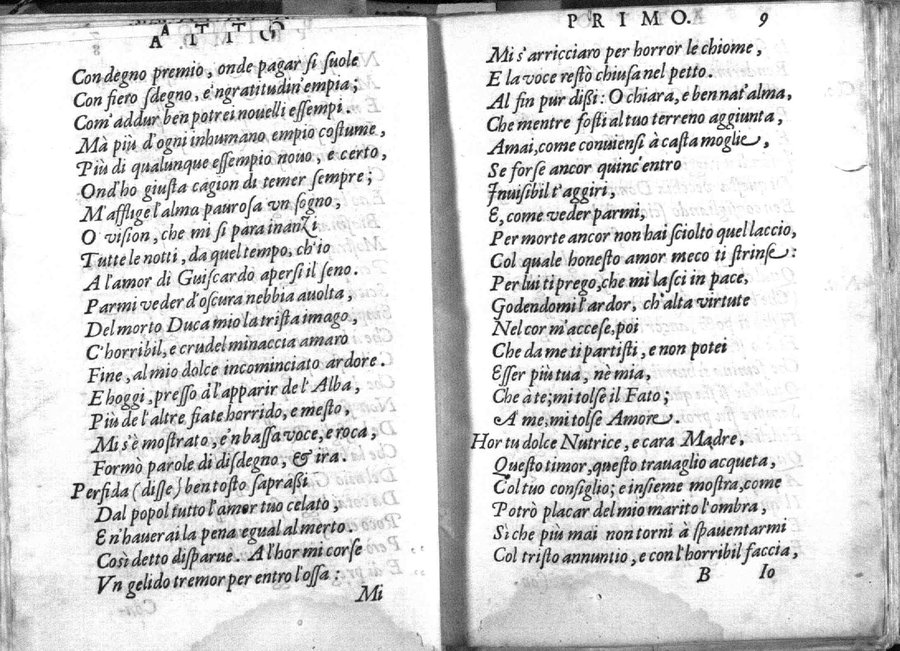 ATTO
Con degno premio, onde pagar si suole
Con fiero sdegno, e'ngratitudin'empia;
Com'addur ben potrei nouelli essempi.
Mà più d'ogni inhumano empio costume,
Più di qualunque essempio nouo, e certo,
Ond'ho giusta cagion di temer sempre;
M'afflige l'alma paurosa vn sogno,
O vision, che mi si para inanZi
Tutte le notti, da quel tempo, ch'io
A l'amor di Guiscardo apersi il seno.
Parmi veder d'oscura nebbia auolta,
Del morto Duca mio la trista imago,
C'horribil, e crudel minaccia amaro
Fine, al mio dolce incominciato ardore.
E hoggi, presso à l'apparir de l'Alba,
Più de l'altre fiate horrido, e mesto,
Mi s'è mostrato, e'n bassa voce, e roca,
Formò parole di disdegno, & ira.
Perfida (disse) ben tosto saprassi
Dal popol tutto l'amor tuo celato,
E n'hauerai la pena egual al merto.
Così detto disparue. A l'hor mi corse
Vn gelido tremor per entro l'ossa;
Mi
PRIMO. 9
Mi s'arricciaro per horror le chiome,
E la voce restò chiusa nel petto.
Al fin pur dißi: O chiara, e ben nat'alma,
Che mentre fosti al tuo terreno aggiunta,
Amai, come conuiensi à casta moglie,
Se forse ancor quinc'entro
Inuisibil t'aggiri,
E, come veder parmi,
Per morte ancor non hai sciolto quel laccio,
Col quale honesto amor meco ti strinse:
Per lui ti prego, che mi lasci in pace,
Godendomi l'ardor, ch'alta virtute
Nel cor m'accese, poi
Che da me ti partisti, e non potei
Esser più tua, nè mia,
Che à te; mi tolse il Fato;
A me; mi tolse Amore.
Hor tu dolce Nutrice, e cara Madre,
Questo timor, questo trauaglio acqueta,
Col tuo consiglio; e insieme mostra, come
Potrò placar del mio marito l'ombra,
Sì che più mai non torni à spauentarmi
Col tristo annuntio, e con l'horribil faccia,
B Io